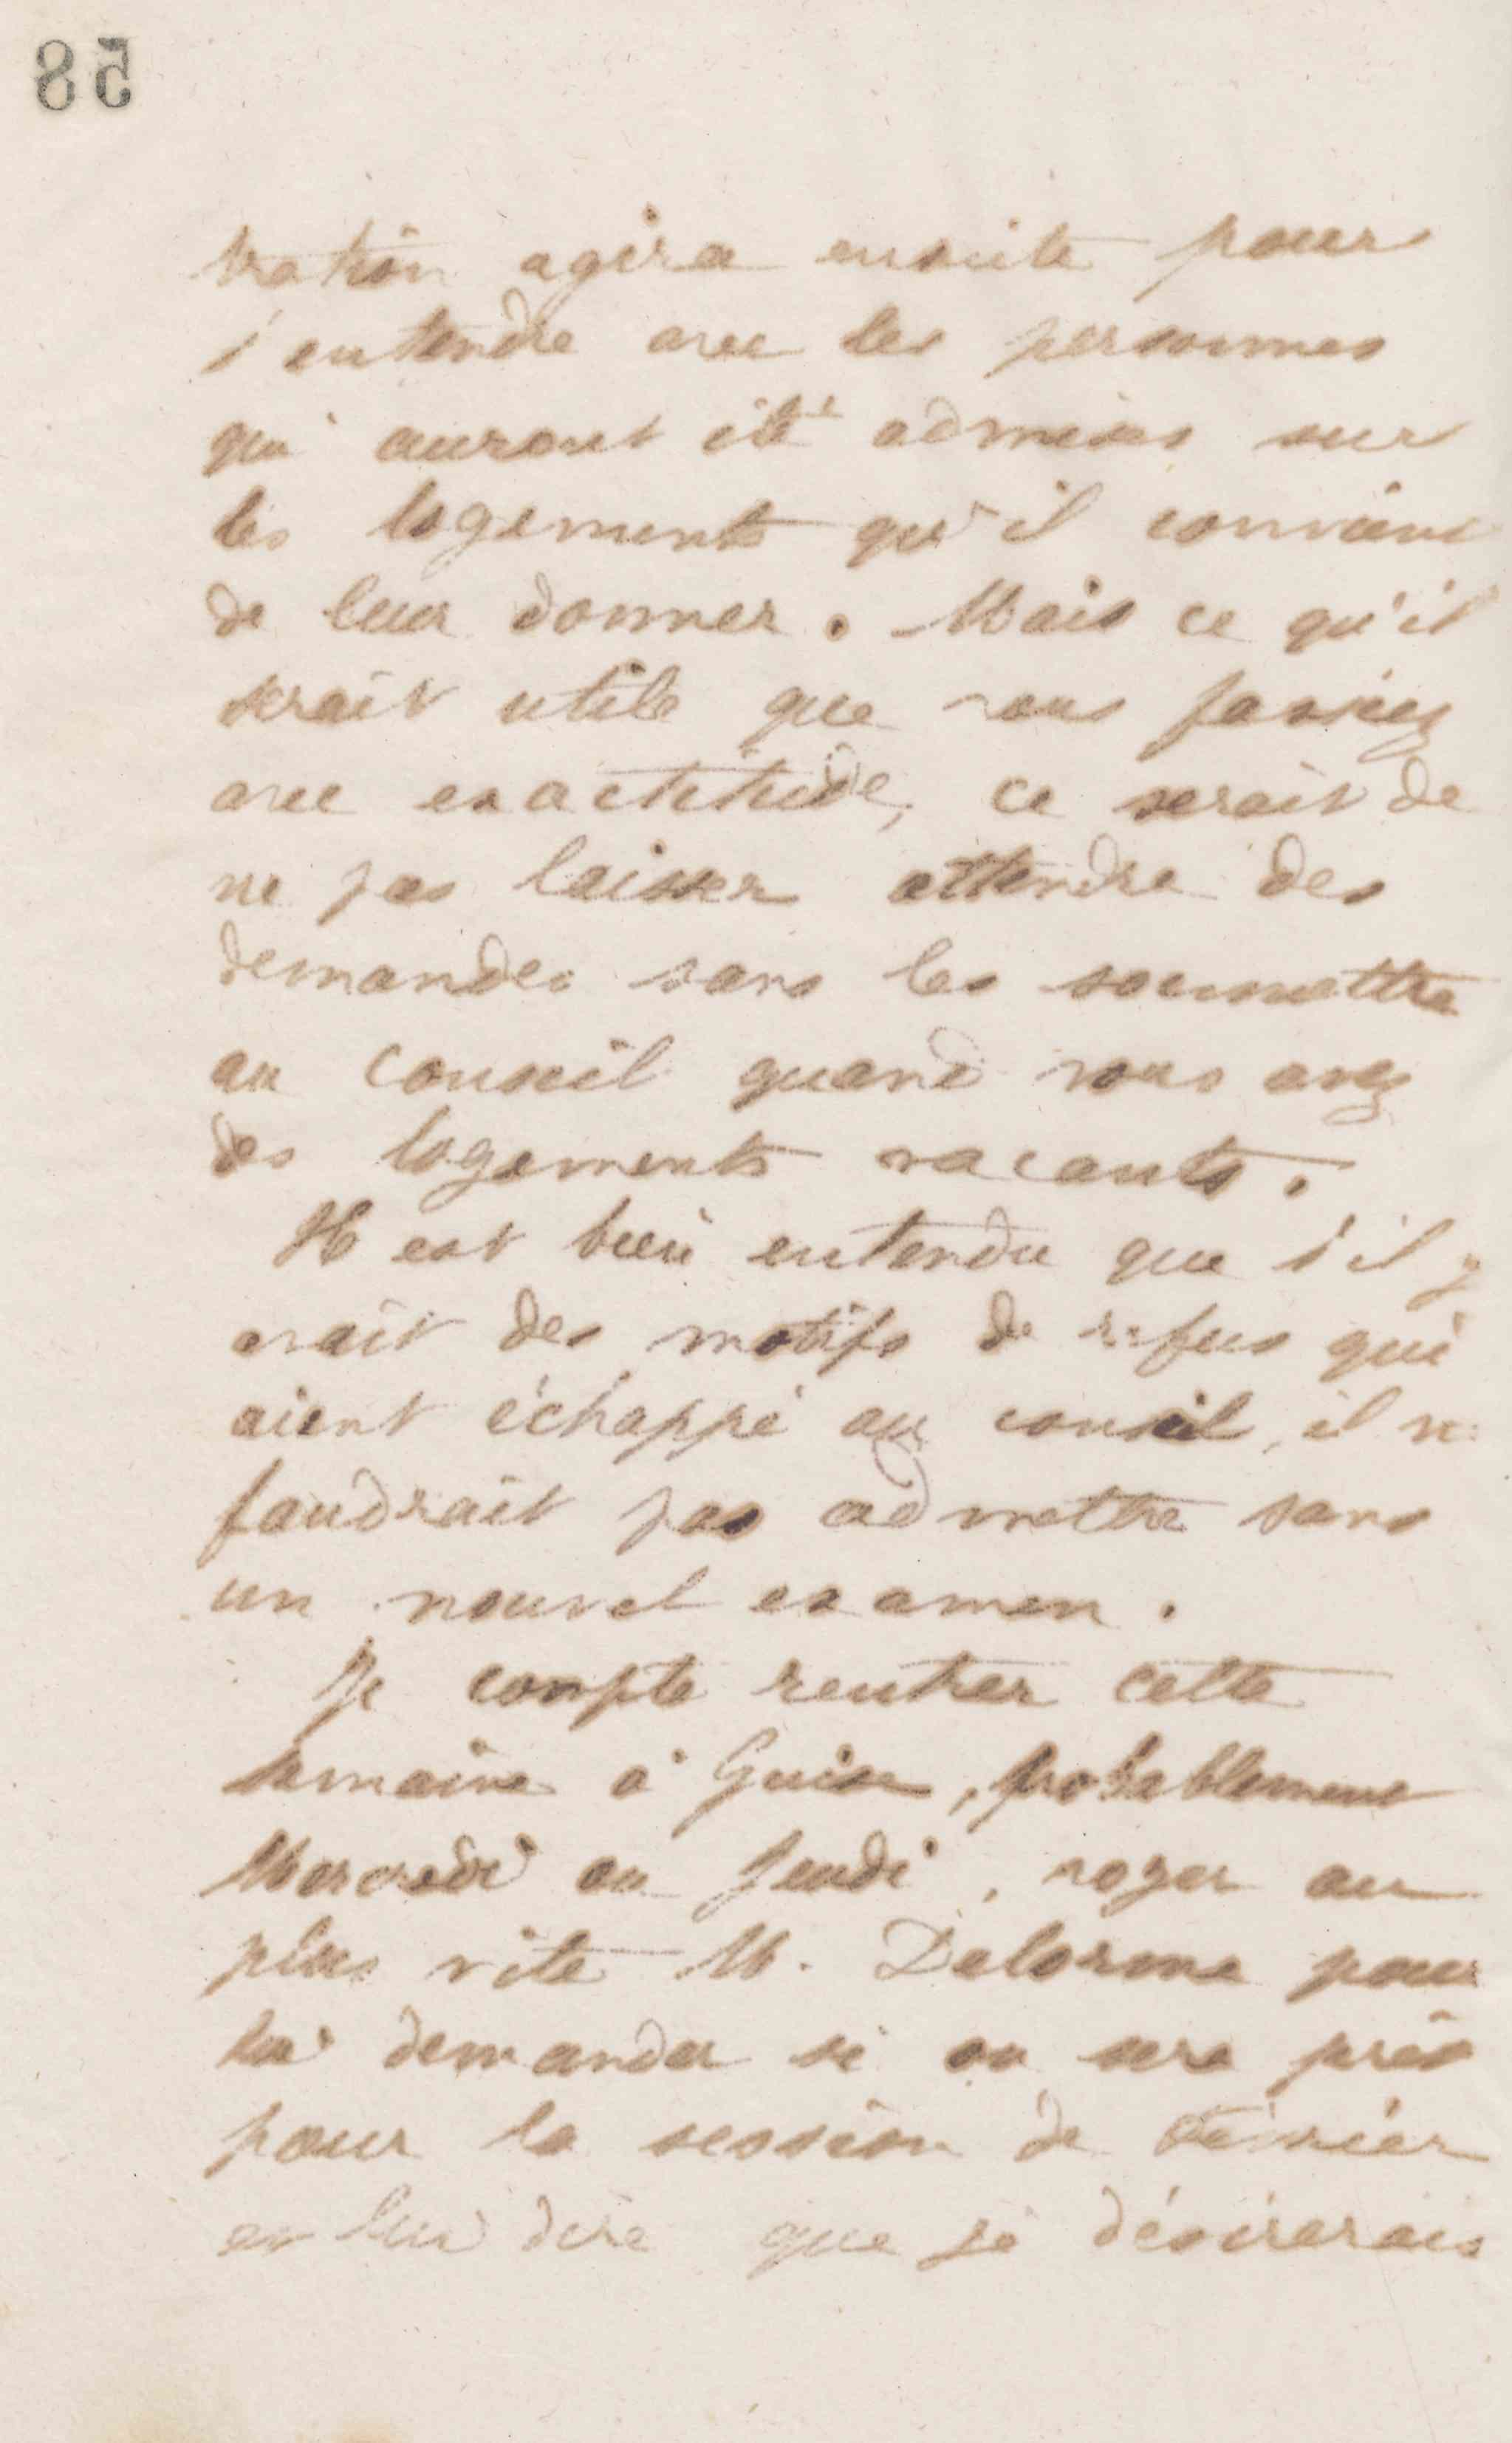 58
tration agira ensuite pour
s'entendre avec les personnes
qui auront été admises sur
les logements qu'il convient
de leur donner. Mais ce qu'il
serait utile que vous fassiez
avec exactitude, ce serait de
ne pas laisser attendre des
demandes sans les soumettre
au Conseil quand vous avez
des logements vacants.
Il est bien entendu que s'il y
avait des motifs de refus qui
aient échappé au conseil, il ne
faudrait pas admettre sans
un nouvel examen.
Je compte rentrer cette
semaine à Guise, probablement
Mercredi ou Jeudi, voyez au
plus vite M. Delorme pour
lui demander si on sera prêt
pour la session de
et lui dire que je désirerais